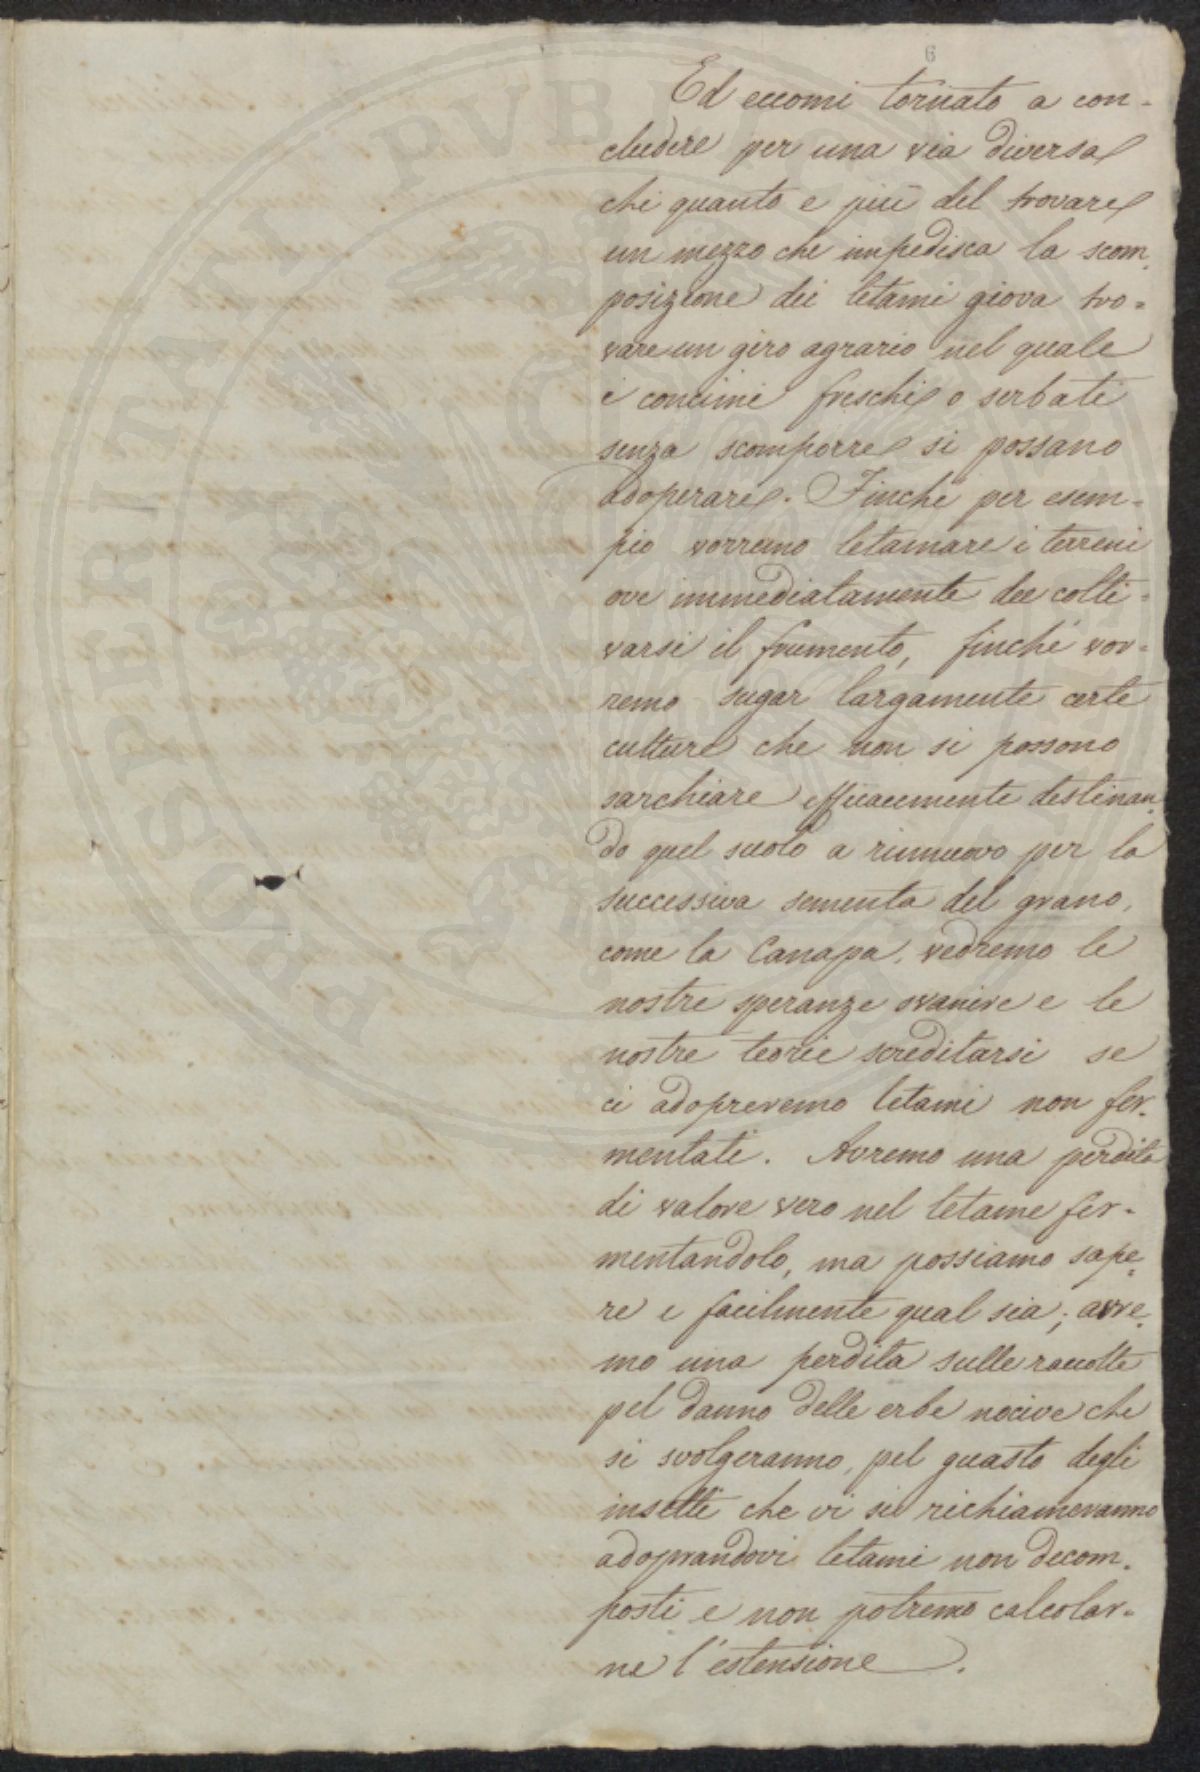 6
Ed eccomi tornato a con-
cludere per una via diversa
che quanto e più del trovare
un mezzo che impedisca la scom-
posizione dei letami giova tro=
vare un giro agrario nel quale
i concimi freschi o serbati
senza scomporre si possano
adoperare. Finché per esem=
pio vorremo letamare i terreni
ove immediatamente dee colti=
varsi il frumento, finché vor=
remo sugar largamente certe
culture che non si possono
sarchiare efficacemente destinan-
do quel suolo a rinnuovo per la
successiva sementa del grano,
come la Canapa, vedremo le
nostre speranze svanire e le
nostre teorie screditarsi se
ci adopreremo letami non fer-
mentati. Avremo una perdita
di valore vero nel letame fer-
mentandolo, ma possiamo sape-
re e facilmente qual sia; avre-
mo una perdita sulle raccolte
pel danno delle erbe nocive che
si svolgeranno, pel guasto degli
insetti che vi si richiameranno
adoprandovi letami non decom-
posti e non potremo calcolar-
ne l'estensione.
PVBLICA
PERINATI